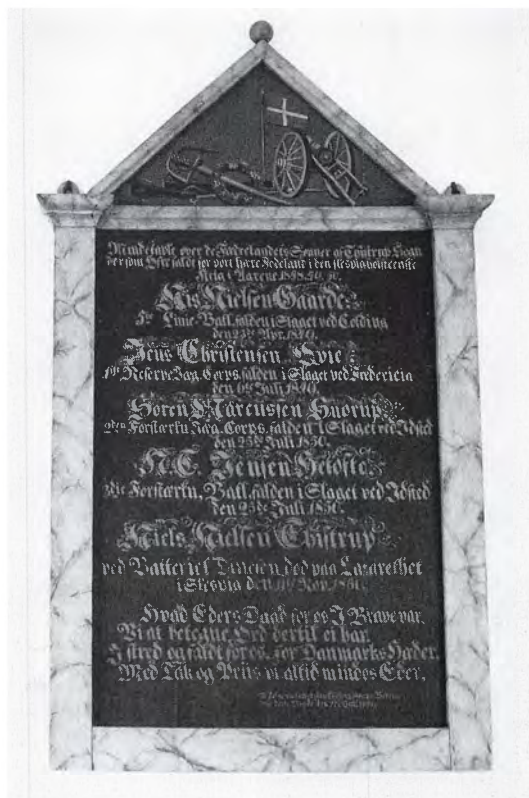 Mindetavle over de Fædrelandets Sønner af Thÿstrup Sogn
der som Ofre faldt for vort kjære Fødeland i den slesvigholsteenske
Krig i Aarene 1848.50.
Nis Nielsen Gaarde
5te Linie-Batl. falden i Slaget ved Colding
den 23de Apr. 1849.
Jens Christensen Qvie
Reserve Jæg. Corps. falden i Slaget ved Fredericia
den 6te Juli 1849.
Søren Marcussen
2den Forstærkn. Jæg. Corps. falden i Slaget ved Idsted
den 25de Juli 1850.
N. C. Jensen
Forstærkn. Batl. falden i Slaget ved Idsted
den 25de Juli 1850.
Niels Nielsen Thÿstrup
ved Batteriet død paa Lazarethet
i Slesvig den Nov.
Hvad Eders Daad for os I Brave var,
Vi at betegne, Ord dertil ei har.
I stred og faldt for os, for Danmarks Hæder,
Med Tak og Priis vi altid mindes Eder.